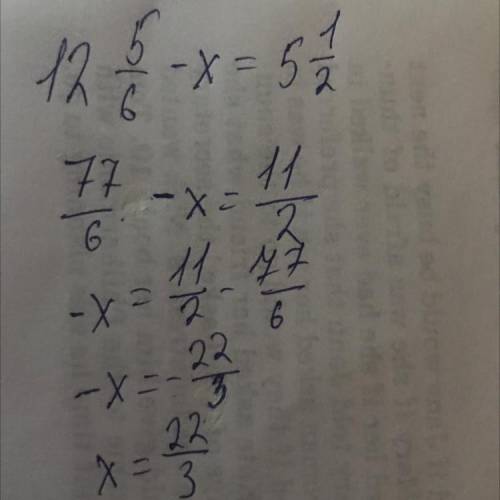 12 5/6 - x = 5 1/2
77/6 - x = 11/2
-x = 11/2 - 77/6
-x = - 22/3
x = 22/3